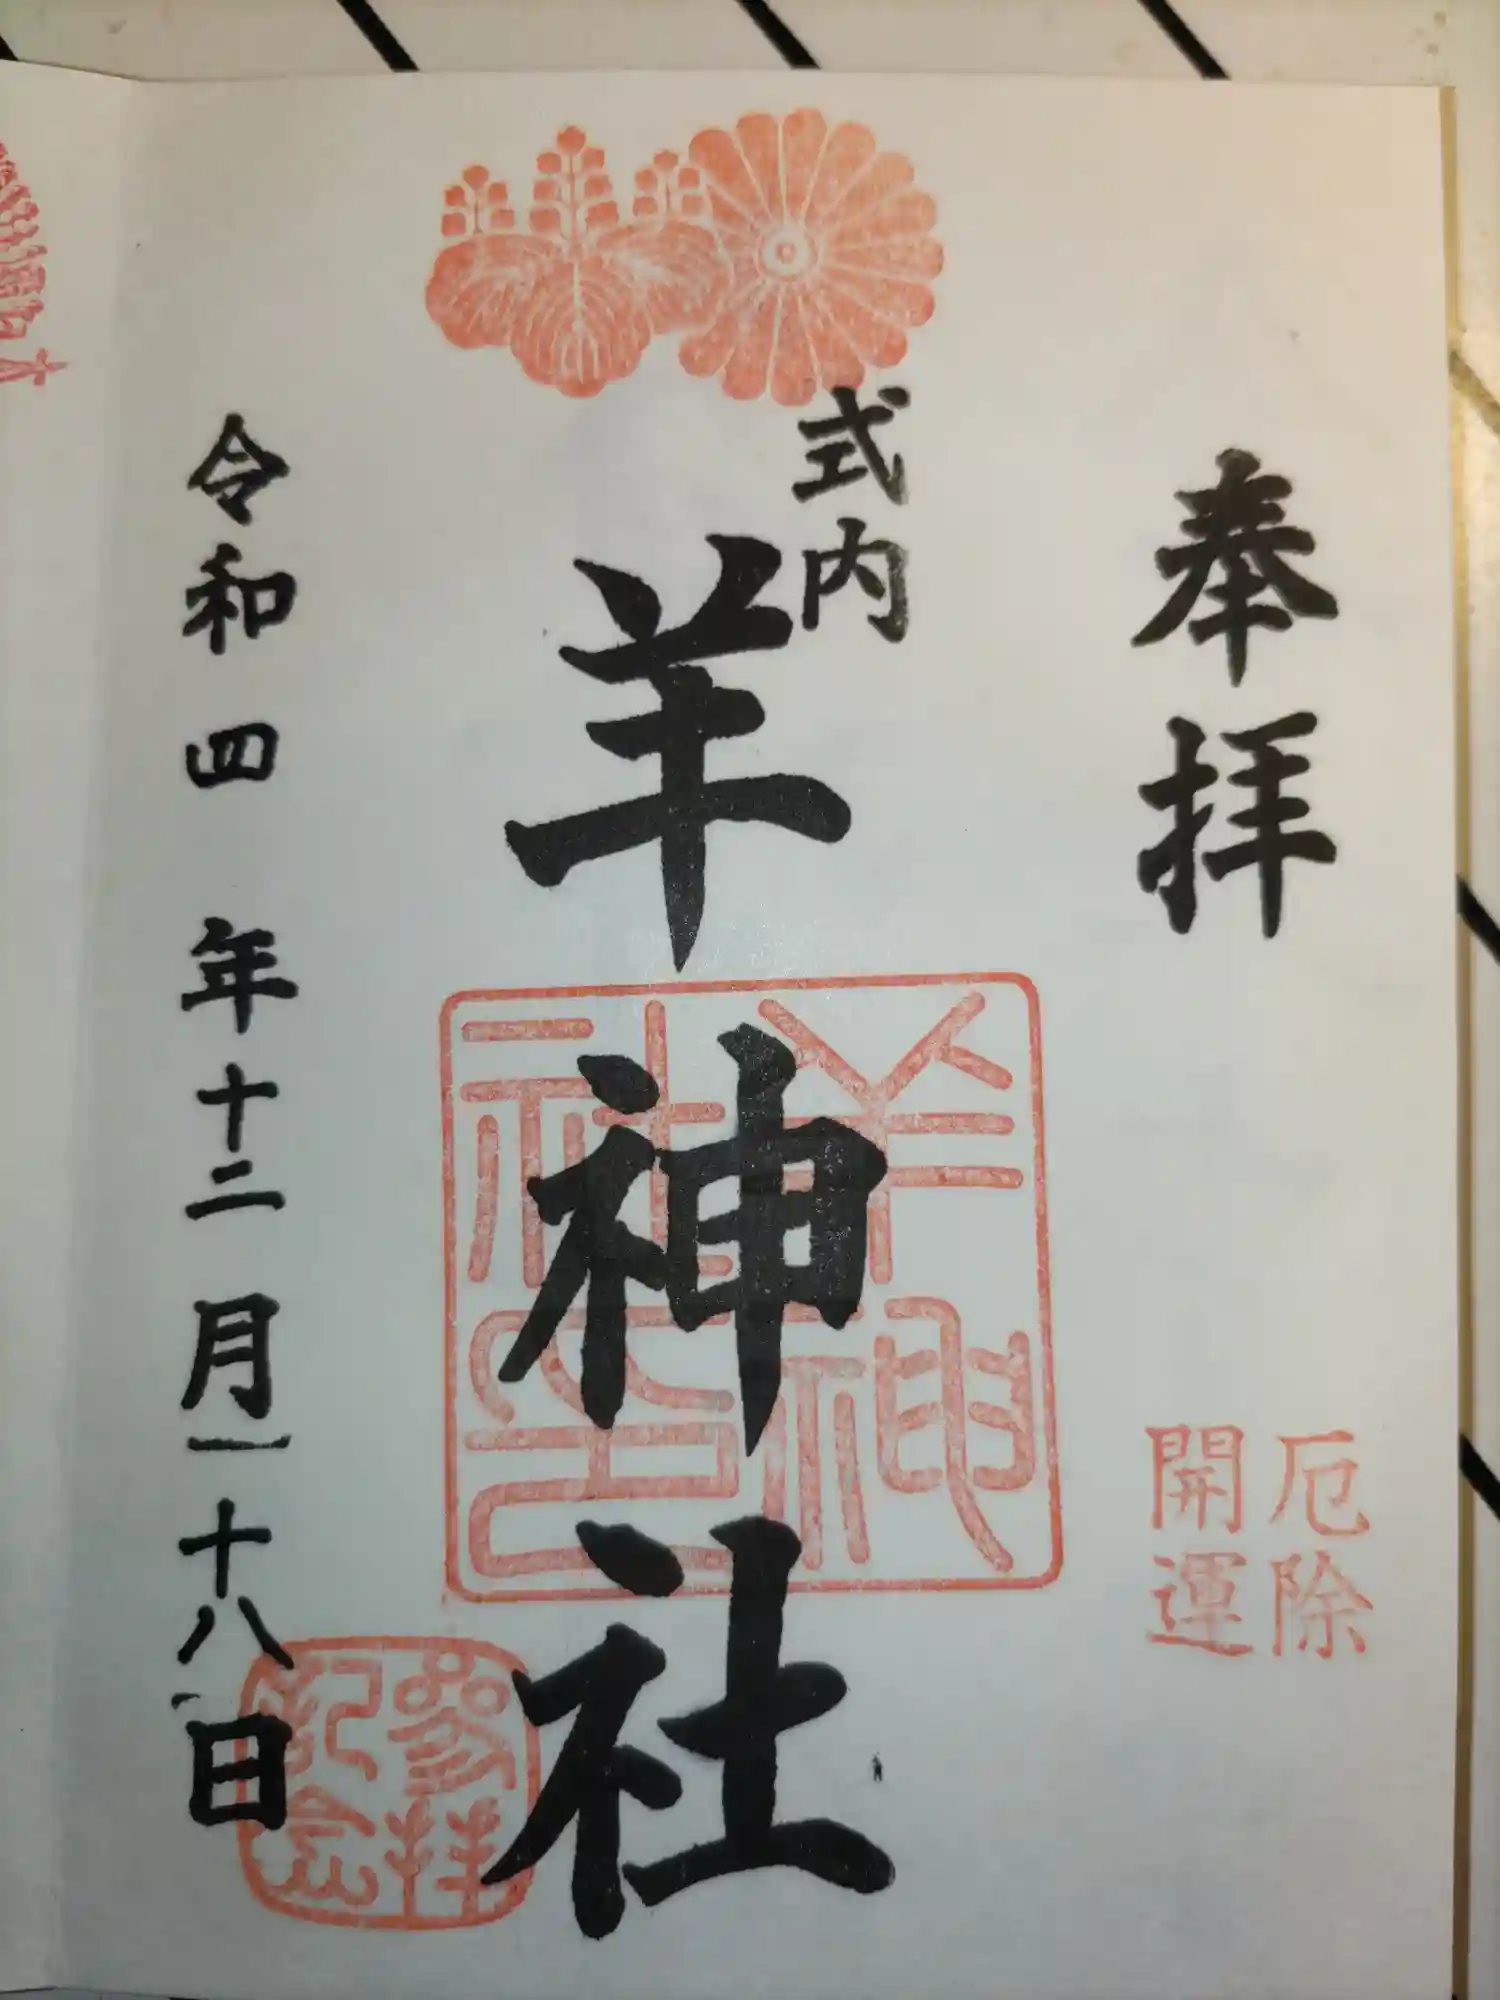 奉拝
厄除
開運
式内
羊神社
羊神社印
参拝
記念
令和四年十二月十八日